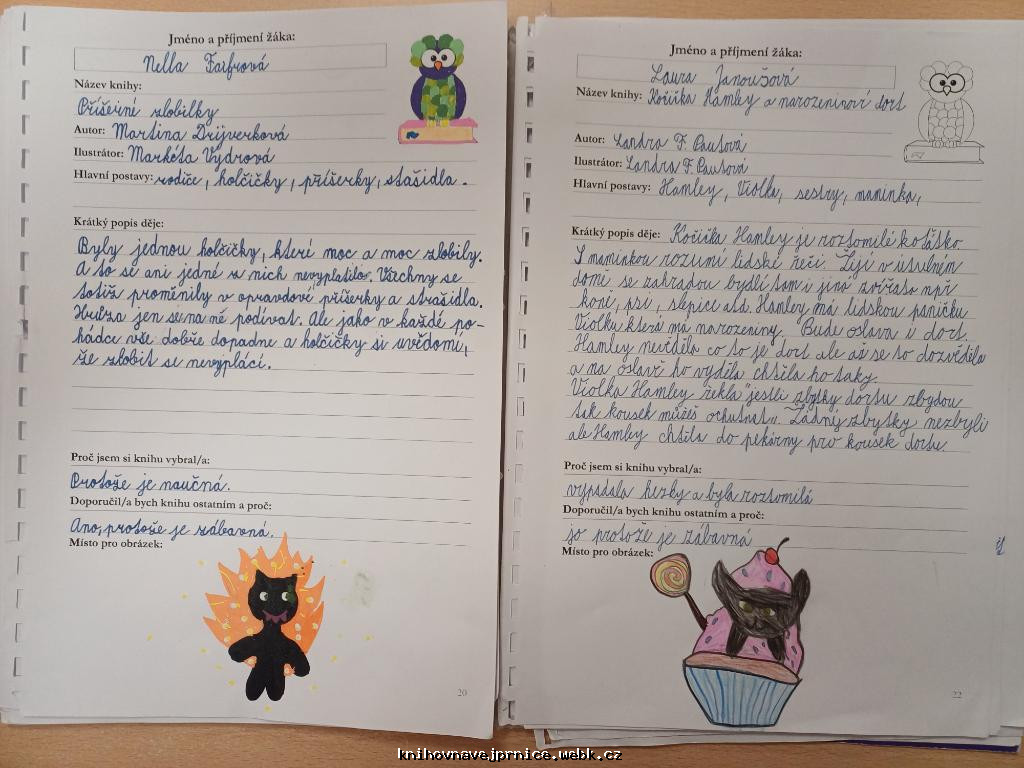 Jméno a příjmení žáka:
Nella Farfrová
Název knihy:
Příšeiné zlobilky
Autor: Martina Drijverková
Ilustrátor: Markéta Vydrová
Hlavní postavy: rodiče, holčičky, příšerky, strašidla.
Krátký popis děje:
Byly jednou holčičky, které moc a moc zlobily.
A to se ani jedné z nich nevyplatilo. Všechny se
totiž proměnily v opravdové příšerky a strašidla.
Hrůza jen se na ně podívat. Ale jako v každé po-
hádce vše dobře dopadne a holčičky si uvědomí,
že zlobit se nevyplácí.
Proč jsem si knihu vybral/a:
Protože je naučná.
Doporučil/a bych knihu ostatním a proč:
Ano, protože je zábavná.
Místo pro obrázek:
20
Jméno a příjmení žáka:
Laura Janoušová
Název knihy: Kočička Hamley a narozeninový dort
Autor:
Ilustrátor:
Hlavní postavy: Hamley, Violka, sestry, maminka,
Krátký popis děje: Kočička Hamley je roztomilé koťátko
S maminkou rozumí lidské řeči. Žijí v útulném
domě se zahradou bydlí tam i jiná zvířata např
koně, psi, slepice atd. Hamley má lidskou paničku
Violku která má narozeniny. Bude oslava i dort.
Hamley nevěděla co to je dort ale až se to dozvěděla
a na oslavě ho vyděla chtěla ho taky.
Violka Hamley řekla "jestli zbytky dortu zbydou
tak kousek můžeš ochutnat". Žádný zbytky nezbyli
ale Hamley chtěla do pekárny pro kousek dortu.
Proč jsem si knihu vybral/a:
vypadala hezky a byla roztomilá
Doporučil/a bych knihu ostatním a proč:
jo protože je zábavná
Místo pro obrázek:
22
knihovnavejprnice.webk.cz